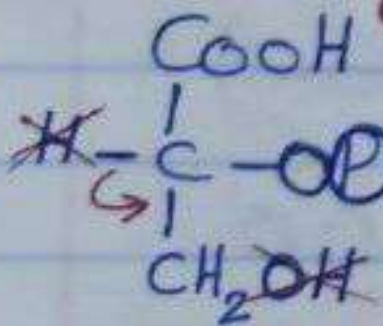 COOH
H - C - OP
CH₂OH